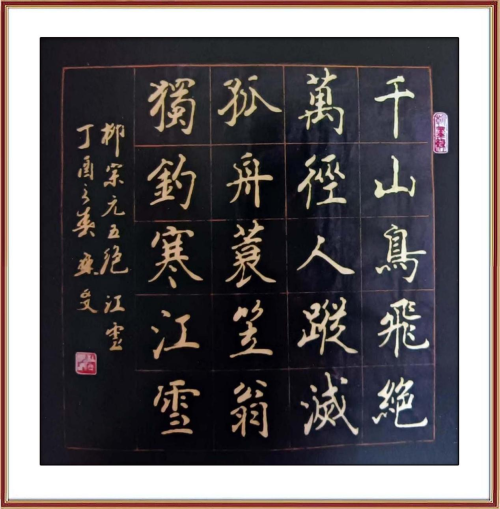 千山鳥飛絕
萬徑人蹤滅
孤舟蓑笠翁
獨釣寒江雪
柳宗元五絕 江雪
丁酉之